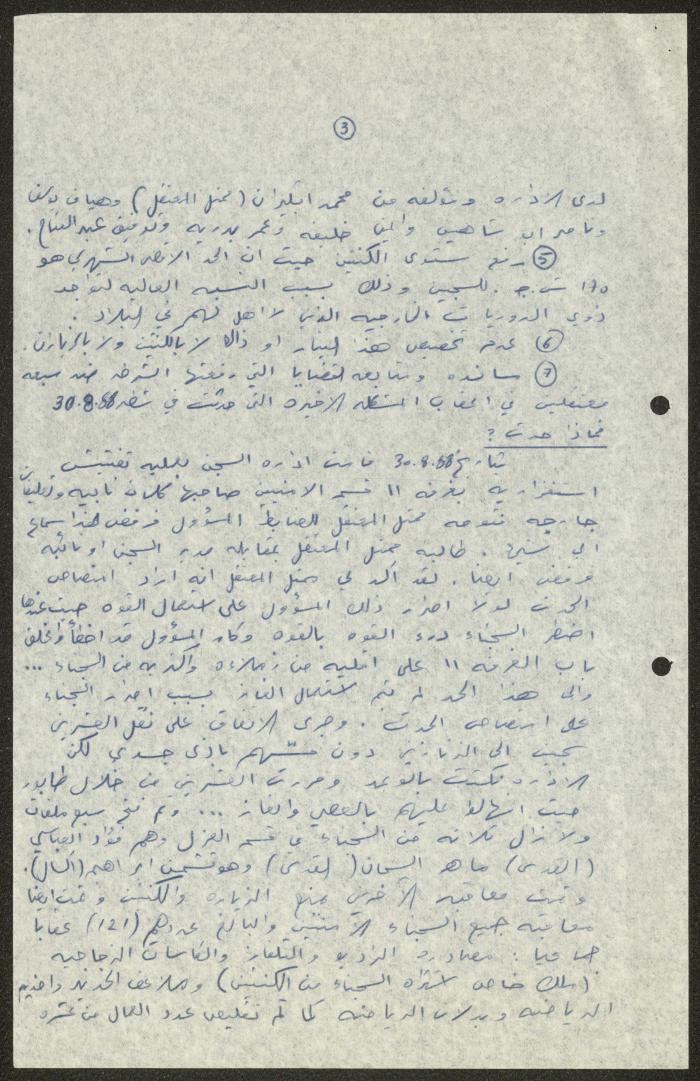 3
لدى الاداره ومؤلفه من محمد ابليران (ممثل المعتقل) وهياف
وناصر ابو شاهين وايمن خليفه وعمر بدريه وتوفيق عبد الفتاح.
5 رفع مستوى الكنتين حيث ان الحد الاقصى الشهري هو
170 ش.ج. للسجين وذلك بسبب النسبه العاليه لتواجد
ذوي الدوريات الخارجيه الذين لا اهل لهم في البلاد.
6 عدم تخصيص هذا البيار او ذاك لا بالكنتين ولا بالزيارات.
7 سانده ومتابعه لقضايا التي رفعتها الشرطه ضد سبعه
معتقلين في اعقاب المشكله الاخيره التي حدثت في 30.8.88
فماذا حدث ؟
بتاريخ 30.8.88 قامت اداره السجن بعمليه تفتيش
استفزازيه بغرفه 11 قسم الامنيين صاحبها كلمات نابيه
جارحه فتوجه ممثل المعتقل للضابط المسؤول فرفض هذا سماع
اي شيئ. طالبه ممثل المعتقل بمقابله مدير السجن او نائبه
فرفض ايضا. لقد اكد لي ممثل المعتقل انه اراد امتصاص
الحدث لولا اصرار ذلك المسؤول على استعمال القوه حيث عندها
اضطر السجناء درء القوه بالقوه وكان المسؤول قد اخطأ واغلق
باب الغرفه 11 على اقليه من زملاءه واكثريه من السجناء ...
والى هذا الحد لم يتم استعمال الغاز بسبب اصرار السجناء
على امتصاص الحدث. وجرى الاتفاق على نقل العشرين
سجين الى الزنازين دون مسّهم باذى جسدي لكن
الاداره نكثت بالوعد ومررت العشرين من خلال طابور
حيث انهالوا عليهم بالعصي والغاز ... وتم فتح سبع ملفات
ولا زال ثلاثه من السجناء في قسم العزل وهم فؤاد العباسي
(القدس) ماهر السمان (القدس) وهو ابراهيم (اكسال).
وتمت معاقبه الآخرين بمنع الزياره والكنتين وتمت ايضا
معاقبه جميع السجناء الامنيين والبالغ عددهم (121) عقابا
جماعيا: مصادره الراديو والتلفاز والكاسات الزجاجيه
(ملك خاص اشتراه السجناء من الكنتين) وملاعق الحديد واحذيه
الرياضه وبدلات الرياضه كما تم تقليص عدد العمال من عشره